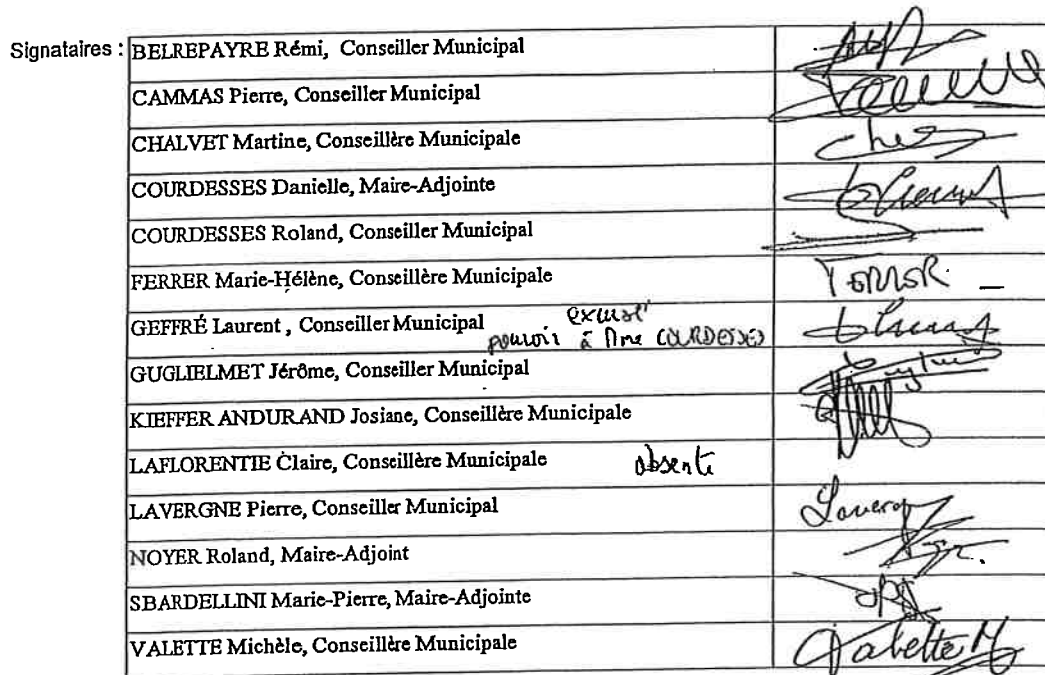 Signataires :
BELREPAYRE Rémi, Conseiller Municipal
CAMMAS Pierre, Conseiller Municipal
CHALVET Martine, Conseillère Municipale
COURDESSES Danielle, Maire-Adjointe
COURDESSES Roland, Conseiller Municipal
FERRER Marie-Hélène, Conseillère Municipale
GEFFRÉ Laurent , Conseiller Municipal excusé
pouvoir à Mme COURDESSES
GUGLIELMET Jérôme, Conseiller Municipal
KIEFFER ANDURAND Josiane, Conseillère Municipale
LAFLORENTIE Claire, Conseillère Municipale absente
LAVERGNE Pierre, Conseiller Municipal
NOYER Roland, Maire-Adjoint
SBARDELLINI Marie-Pierre, Maire-Adjointe
VALETTE Michèle, Conseillère Municipale Valette M